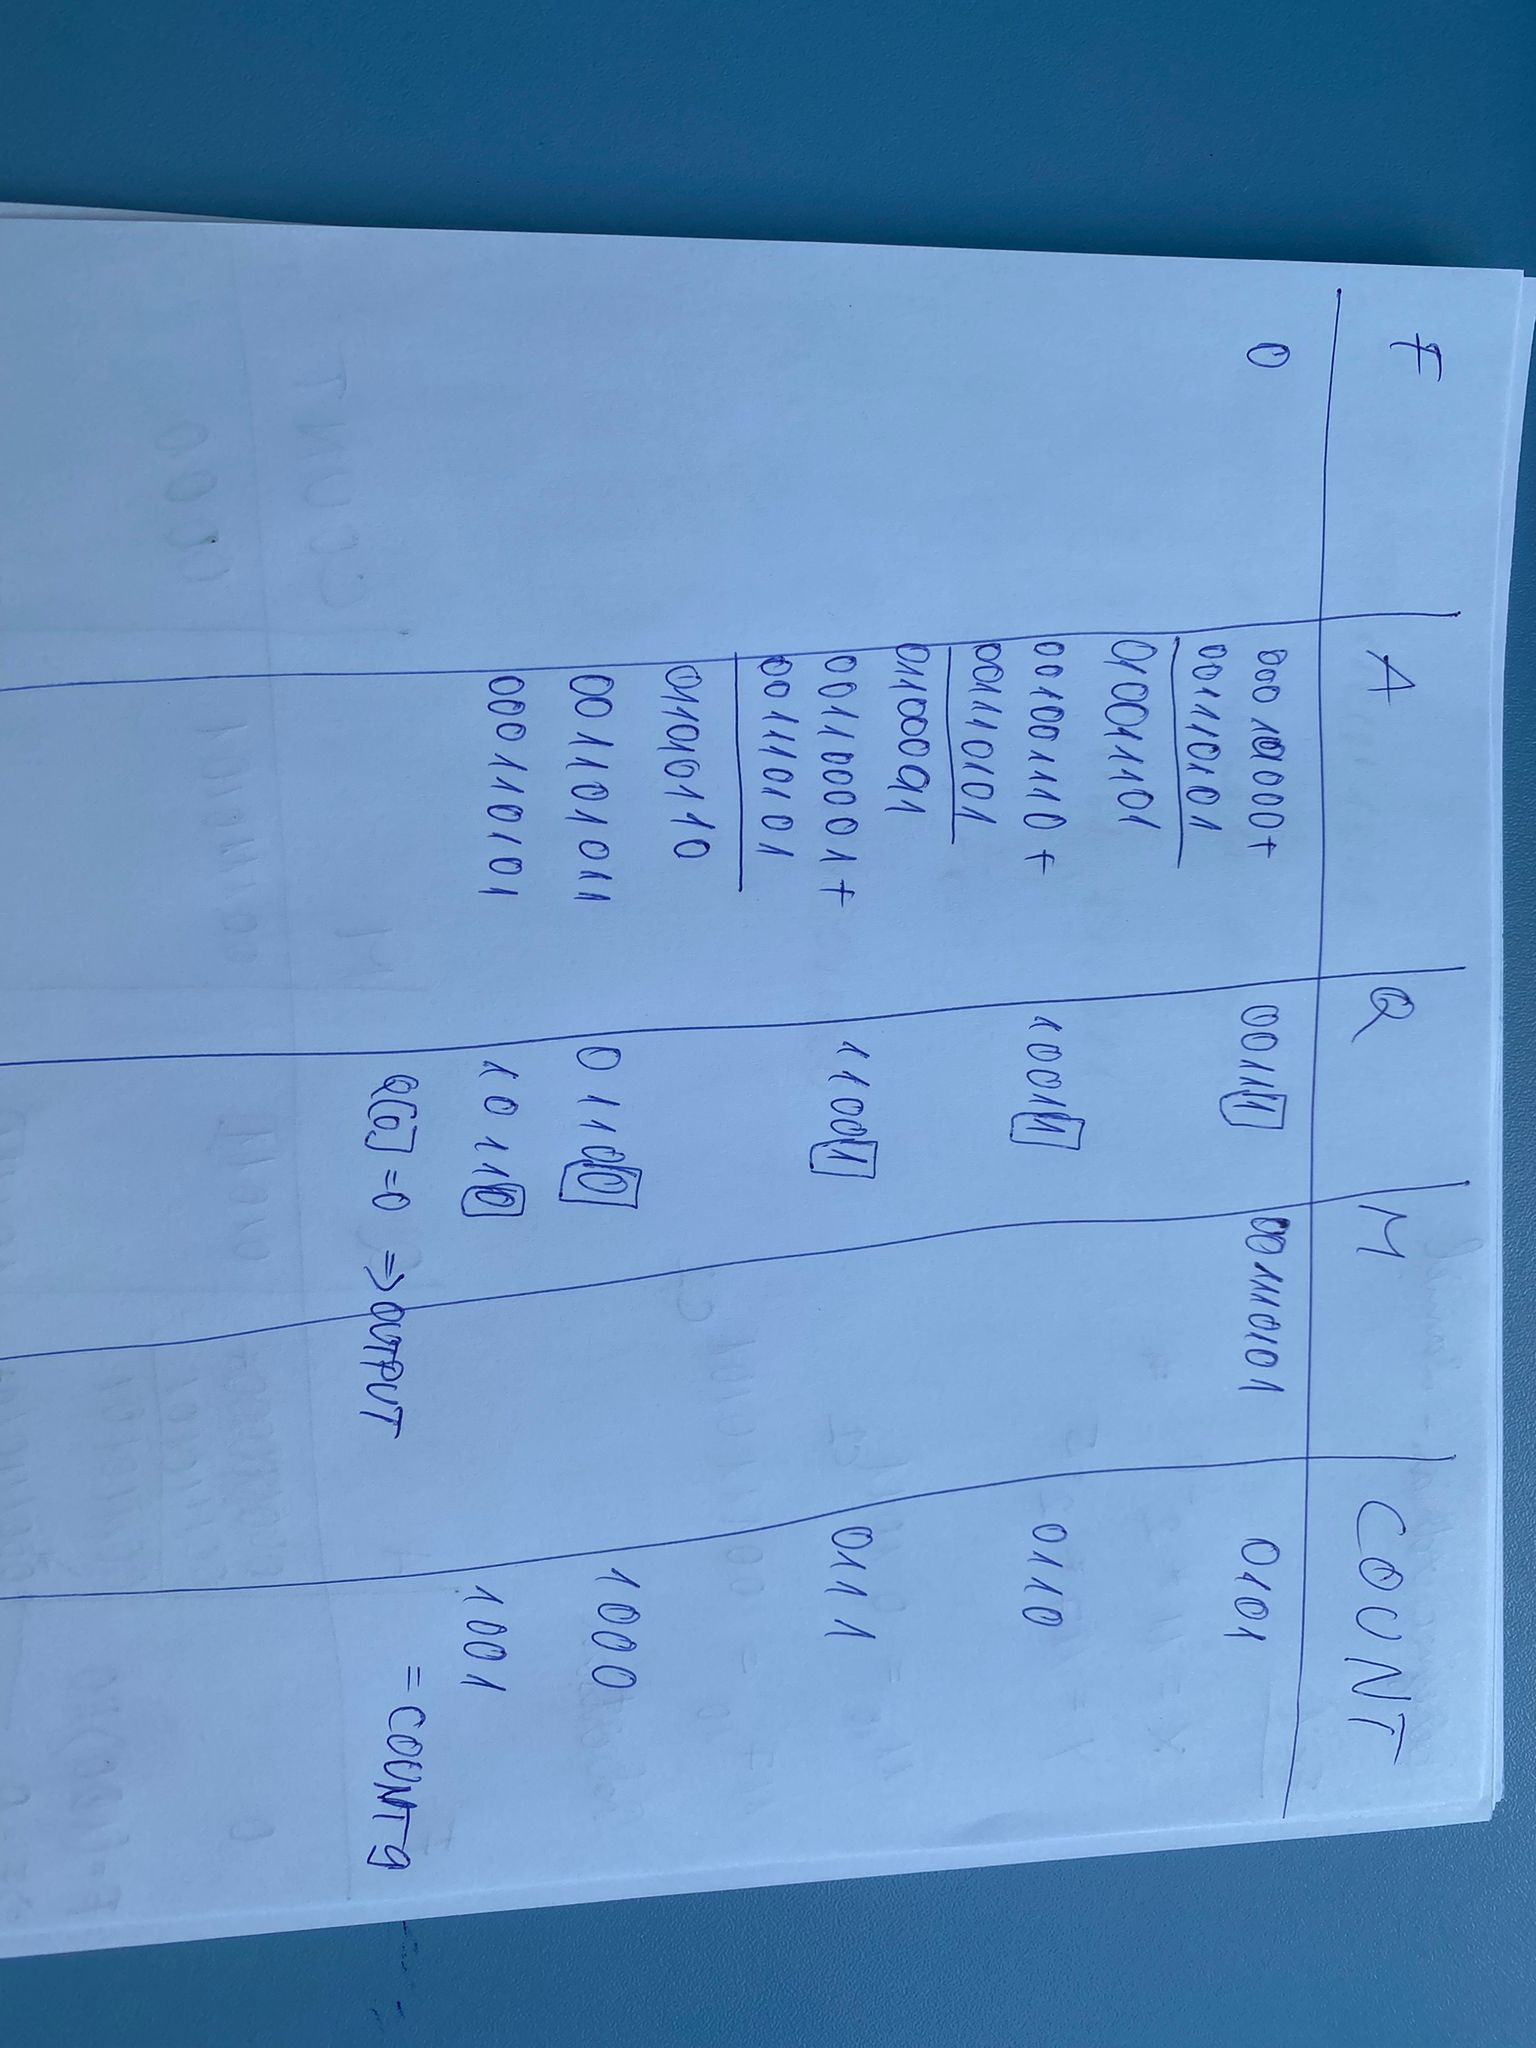 F A Q M COUNT
0 000101000+ 00111 001110101 0101
001110101
010011101
001001110 + 10011 0110
001110101
011000011
001100001 + 11001 0111
001110101
011010110
001101011 01100 1000
000110101 10110 1001
Q[0] = 0 => OUTPUT = COUNT 9